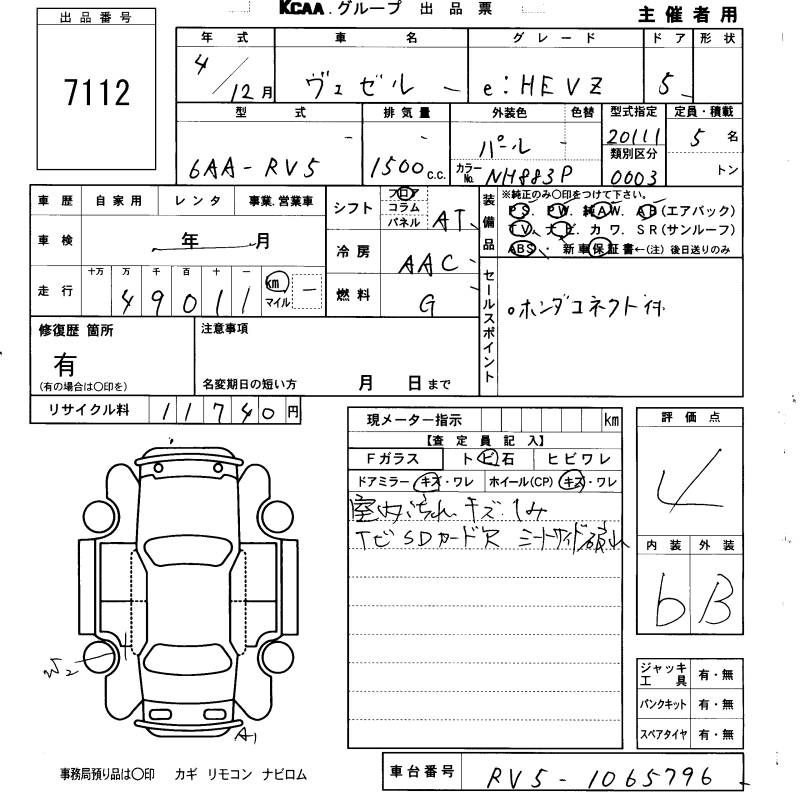 KCAA.グループ 出品票
主催者用
出品番号
7112
年式 車名 グレード ドア 形状
4/12月 ヴェゼル e:HEV Z 5
型式 排気量 外装色 色替 型式指定 定員・積載
6AA-RV5 1500c.c. パール 20111 5名
カラーNo. NH883P 類別区分 0003 トン
車歴 自家用 レンタ 事業.営業車
車検 年 月
走行 十万 万 千 百 十 一
49011 km マイル
シフト フロア コラム パネル AT
冷房 AAC
燃料 G
装備品 ※純正のみ○印をつけて下さい。
PS. PW. 純AW. AB(エアバック)
TV. ナビ. カワ. SR(サンルーフ)
ABS・ 新車保証書←(注) 後日送りのみ
セールスポイント
○ホンダコネクト付
修復歴 箇所
有
(有の場合は○印を)
注意事項
名変期日の短い方 月 日まで
リサイクル料 11740円
現メーター指示 km
【査定員記入】
Fガラス トビ石 ヒビワレ
ドアミラー キズ・ワレ ホイール(CP) キズ・ワレ
室内汚れ キズ.シミ
TビSDカード欠 シートサイド破れ
評価点
4
内装 外装
b B
W2
A1
ジャッキ工具 有・無
パンクキット 有・無
スペアタイヤ 有・無
事務局預り品は○印 カギ リモコン ナビロム
車台番号 RV5-1065796